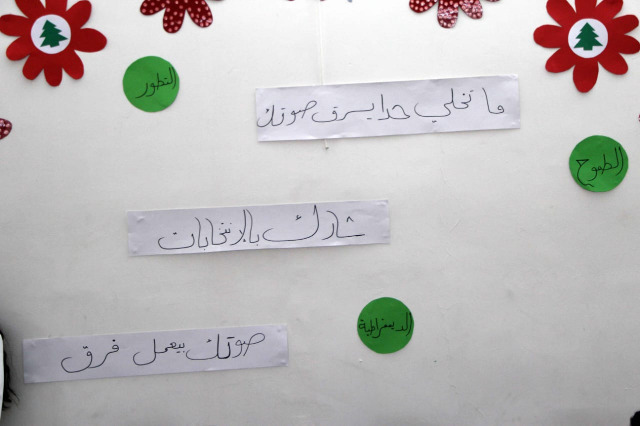 التطور
ما تخلي حدا يسرق صوتك
الطموح
شارك بالإنتخابات
الديمقراطية
صوتك بيعمل فرق